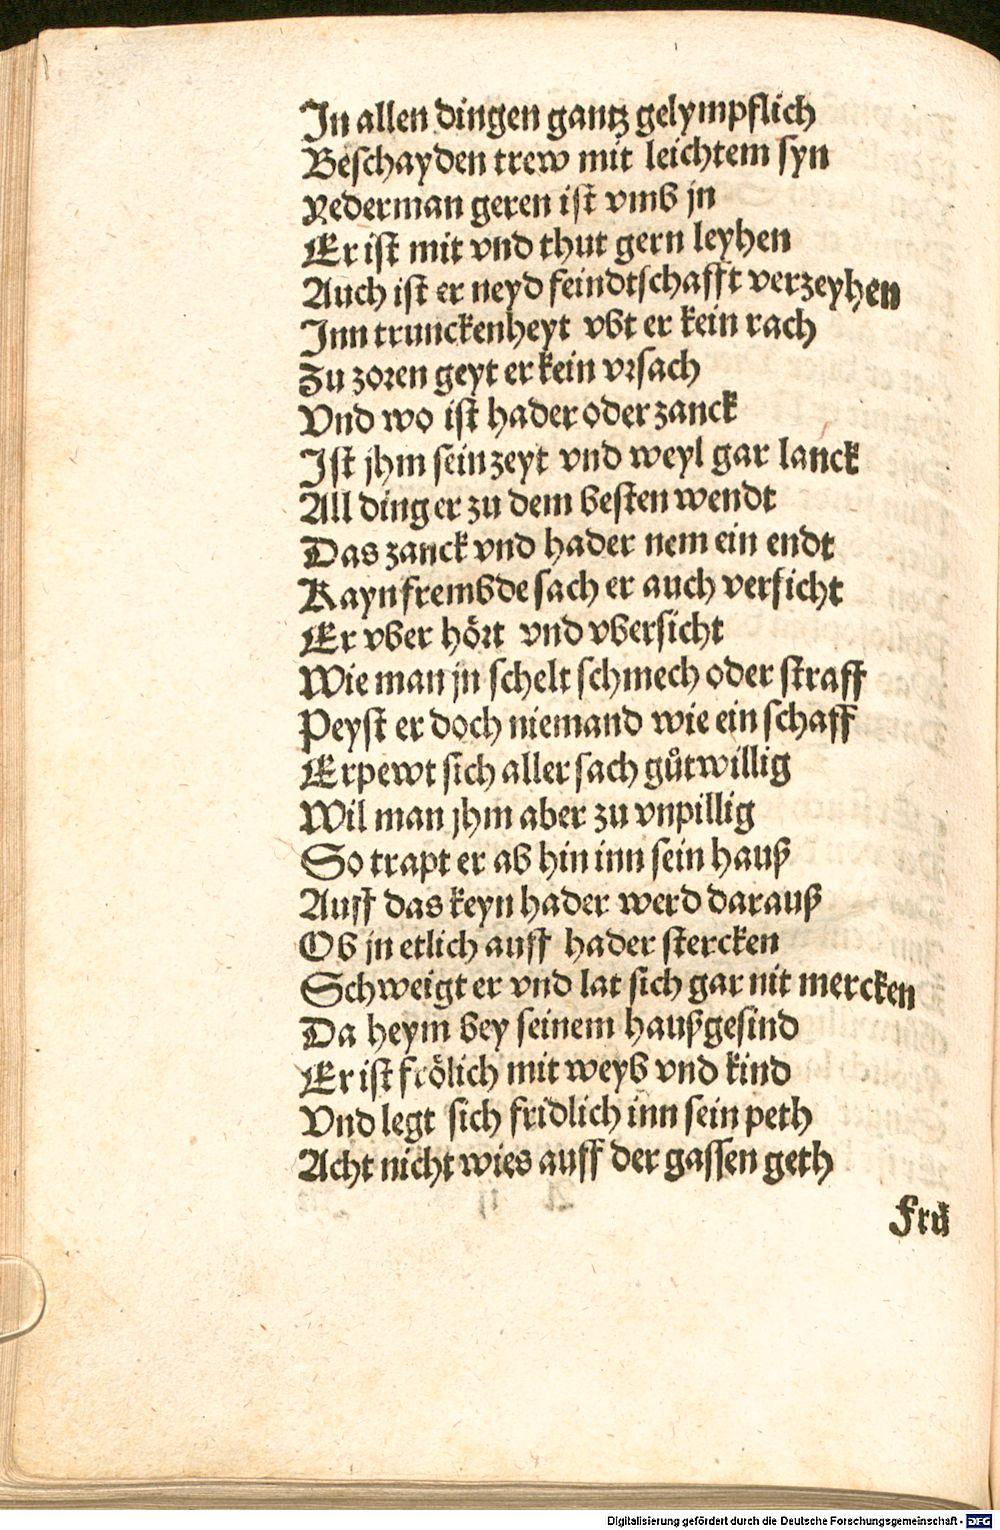 In allen dingen gantz gelympflich
Beschayden trew mit leichtem syn
Yederman geren ist vmb jn
Er ist mit vnd thut gern leyhen
Auch ist er neyd feindtschafft verzeyhen
Inn trunckenheyt vbt er kein rach
Zu zoren geyt er kein vrsach
Vnd wo ist hader oder zanck
Ist jhm sein zeyt vnd weyl gar lanck
All ding er zu dem besten wendt
Das zanck vnd hader nem ein endt
Kayn frembde sach er auch verficht
Er vber hört vnd vbersicht
Wie man jn schelt schmech oder straff
Peyst er doch niemand wie ein schaff
Erpewt sich aller sach gůtwillig
Wil man jhm aber zu vnpillig
So trapt er ab hin inn sein hauß
Auff das keyn hader werd darauß
Ob jn etlich auff hader stercken
Schweigt er vnd lat sich gar nit mercken
Da heym bey seinem haußgesind
Er ist frölich mit weyb vnd kind
Vnd legt sich fridlich inn sein peth
Acht nicht wies auff der gassen geth
Frü
Digitalisierung gefördert durch die Deutsche Forschungsgemeinschaft - DFG